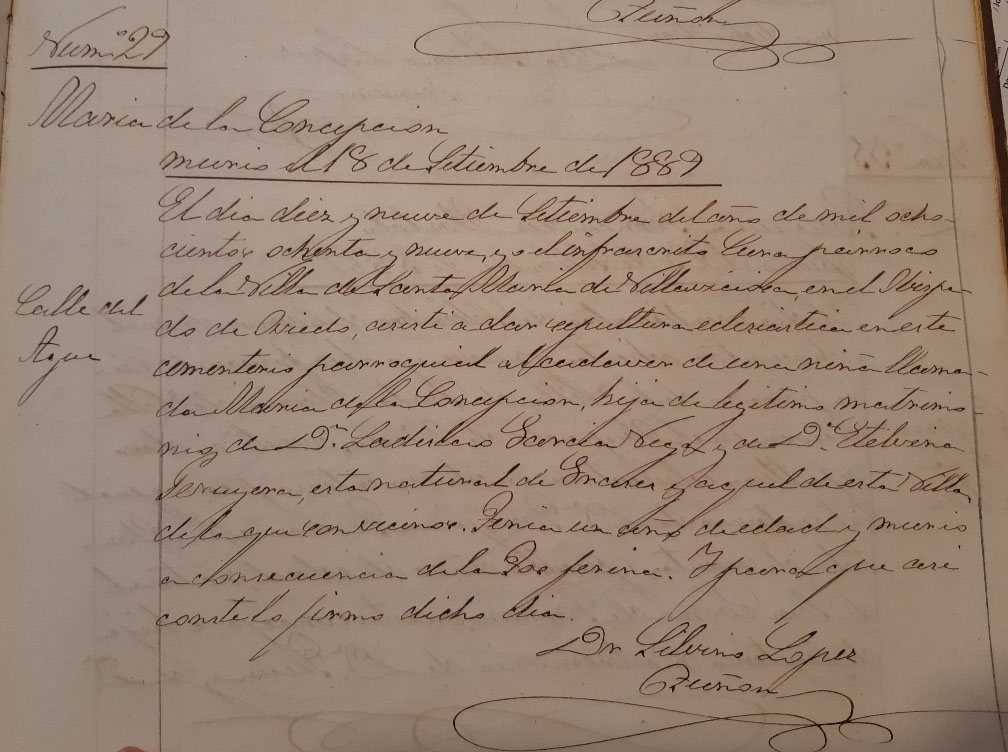 Quñon
Num.º 29
Maria de la Concepcion
murio el 18 de Setiembre de 1889
El dia diez y nueve de Setiembre del año de mil ocho-
cientos ochenta y nueve, yo el infrascrito Cura parroco
de la Villa de Santa Maria de Villaviciosa, en el Obispa-
do de Oviedo, asisti a dar sepultura eclesiastica en este
Calle del
Agua
cementerio parroquial al cadaver de una niña llama-
da Maria de la Concepcion, hija de legitimo matrimo-
nio, de D.n Ladislao Garcia Vega y de D.ª Etelvina
esta natural de y aquel de esta Villa
de la que son vecinos. Tenia un año de edad y murio
a consecuencia de la Tos ferina. Y para que asi
conste lo firmo dicho dia.
Dr Silvino Lopez
Quñon